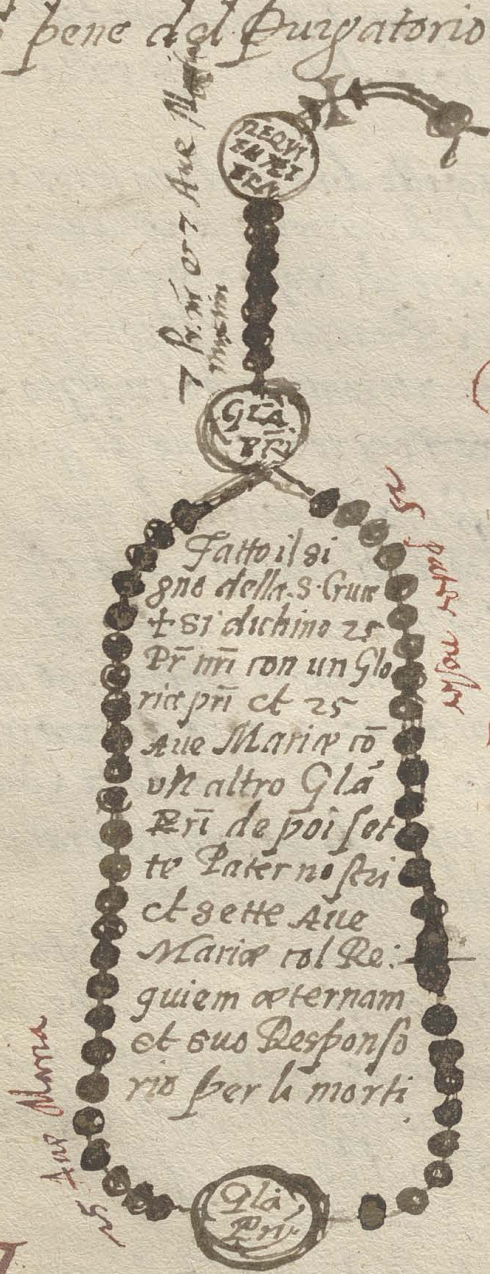 pene del Purgatorio
REQVI
EM ÆT
ERN
7 Pr. nri et 7 Ave Ma
GLA
PRI
25 pater noster
Fatto il si
gno della S. Cruce
+ si dichino 25
Pr̄ nr̄i con un Glo
riæ pr̄i et 25
Ave Mariæ cō
vn altro Glā
Pr̄i de poi set
te Pater nostri
et sette Ave
Mariæ col Re:
quiem æternam
et suo Responso
rio per li morti
25 Ave Maria
Gla
Pri